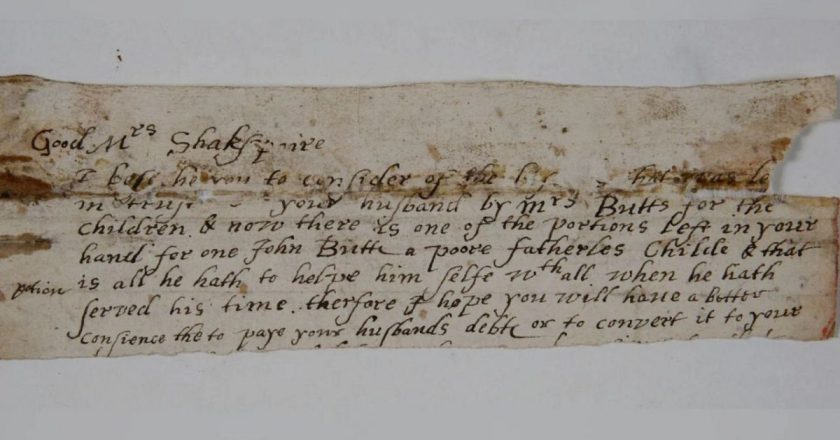 Good Mrs Shakspaire
I bese he you to consider of the that was le
in trust your husband by Mrs Butts for the
Children & now there is one of the portions Left in your
hand for one John Butte a poore fatherles Childe & that
potion is all he hath to helpe him selfe wth all when he hath
served his time therfore I hope you will have a better
consience the to paye your husbands debte or to convert it to your